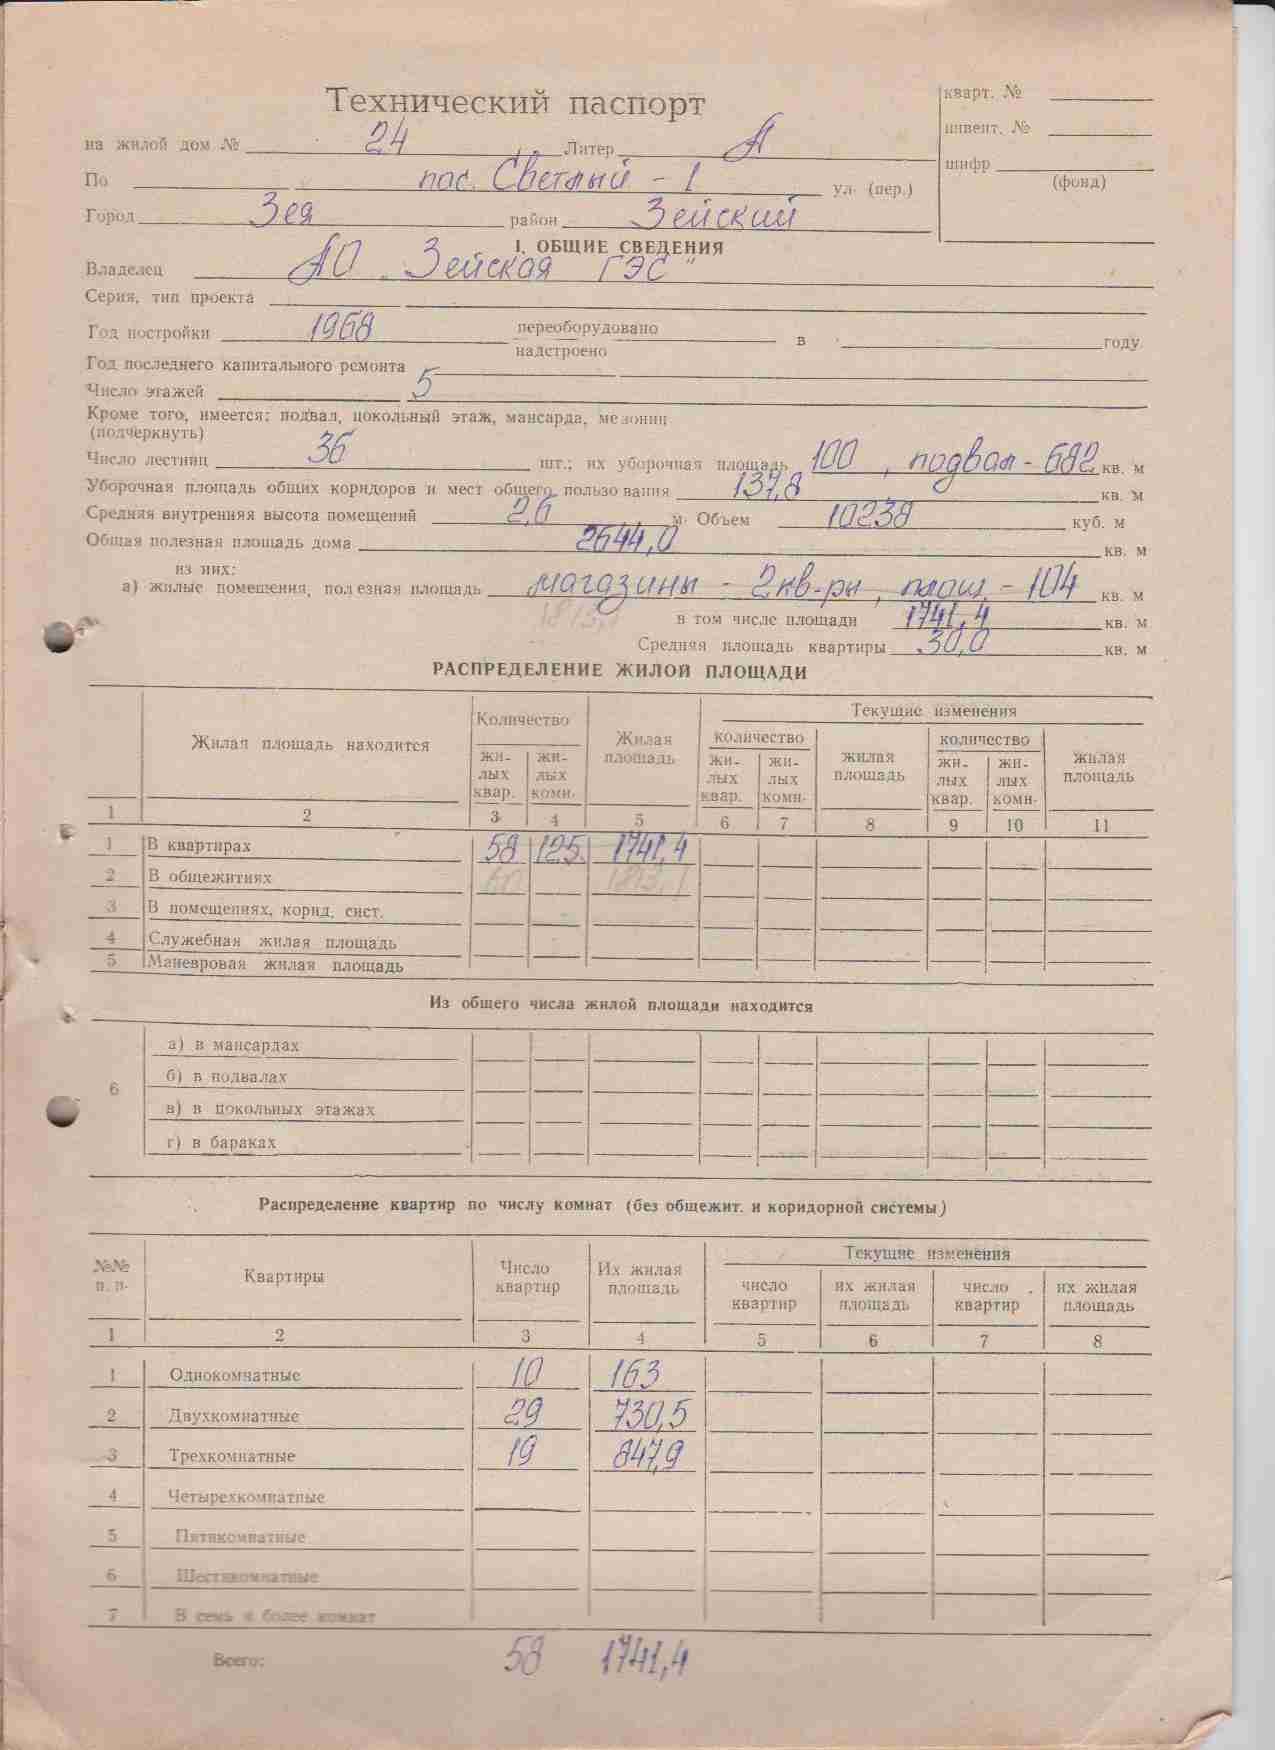 Технический паспорт
кварт. №
инвент. №
шифр
(фонд)
на жилой дом № 24 Литер А
По пос. Светлый - 1 ул. (пер.)
Город Зея район Зейский
I. ОБЩИЕ СВЕДЕНИЯ
Владелец АО „Зейская ГЭС"
Серия, тип проекта
Год постройки 1968 переоборудовано
надстроено в году
Год последнего капитального ремонта
Число этажей 5
Кроме того, имеется: подвал, цокольный этаж, мансарда, мезонин
(подчеркнуть)
Число лестниц 36 шт.; их уборочная площадь 100, подвал - 682 кв. м
Уборочная площадь общих коридоров и мест общего пользования 137,8 кв. м
Средняя внутренняя высота помещений 2,6 м. Объем 10238 куб. м
Общая полезная площадь дома 2644,0 кв. м
из них:
а) жилые помещения, полезная площадь магазины - 2 кв-ры, площ. - 104 кв. м
1813,1 в том числе площади 1741,4 кв. м
Средняя площадь квартиры 30,0 кв. м
РАСПРЕДЕЛЕНИЕ ЖИЛОЙ ПЛОЩАДИ
Жилая площадь находится
Количество
жилых квар.
жилых комн.
Жилая площадь
Текущие изменения
количество
жилых квар.
жилых комн.
жилая площадь
количество
жилых квар.
жилых комн.
жилая площадь
1 2 3 4 5 6 7 8 9 10 11
1 В квартирах 58 125 1741,4
2 В общежитиях 60 1813,1
3 В помещениях, корид. сист.
4 Служебная жилая площадь
5 Маневровая жилая площадь
Из общего числа жилой площади находится
6
а) в мансардах
б) в подвалах
в) в цокольных этажах
г) в бараках
Распределение квартир по числу комнат (без общежит. и коридорной системы)
№№ п. п.
Квартиры
Число квартир
Их жилая площадь
Текущие изменения
число квартир
их жилая площадь
число квартир
их жилая площадь
1 2 3 4 5 6 7 8
1 Однокомнатные 10 163
2 Двухкомнатные 29 730,5
3 Трехкомнатные 19 847,9
4 Четырехкомнатные
5 Пятикомнатные
6 Шестикомнатные
7 В семь и более комнат
Всего: 58 1741,4